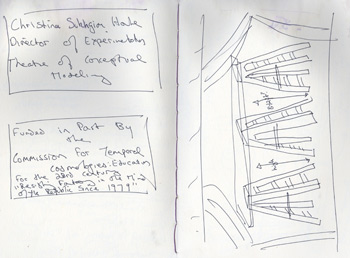 Christina
Director of Experimentation
Theatre of Conceptual
Modeling
Funded in Part By
the
Commission For Temporal
Cosmologies: Education
For the 23rd century
in the Mind
of the Public Since 1979"